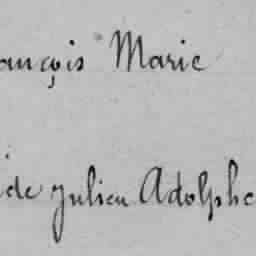 ançois Marie
ide Julien Adolphe